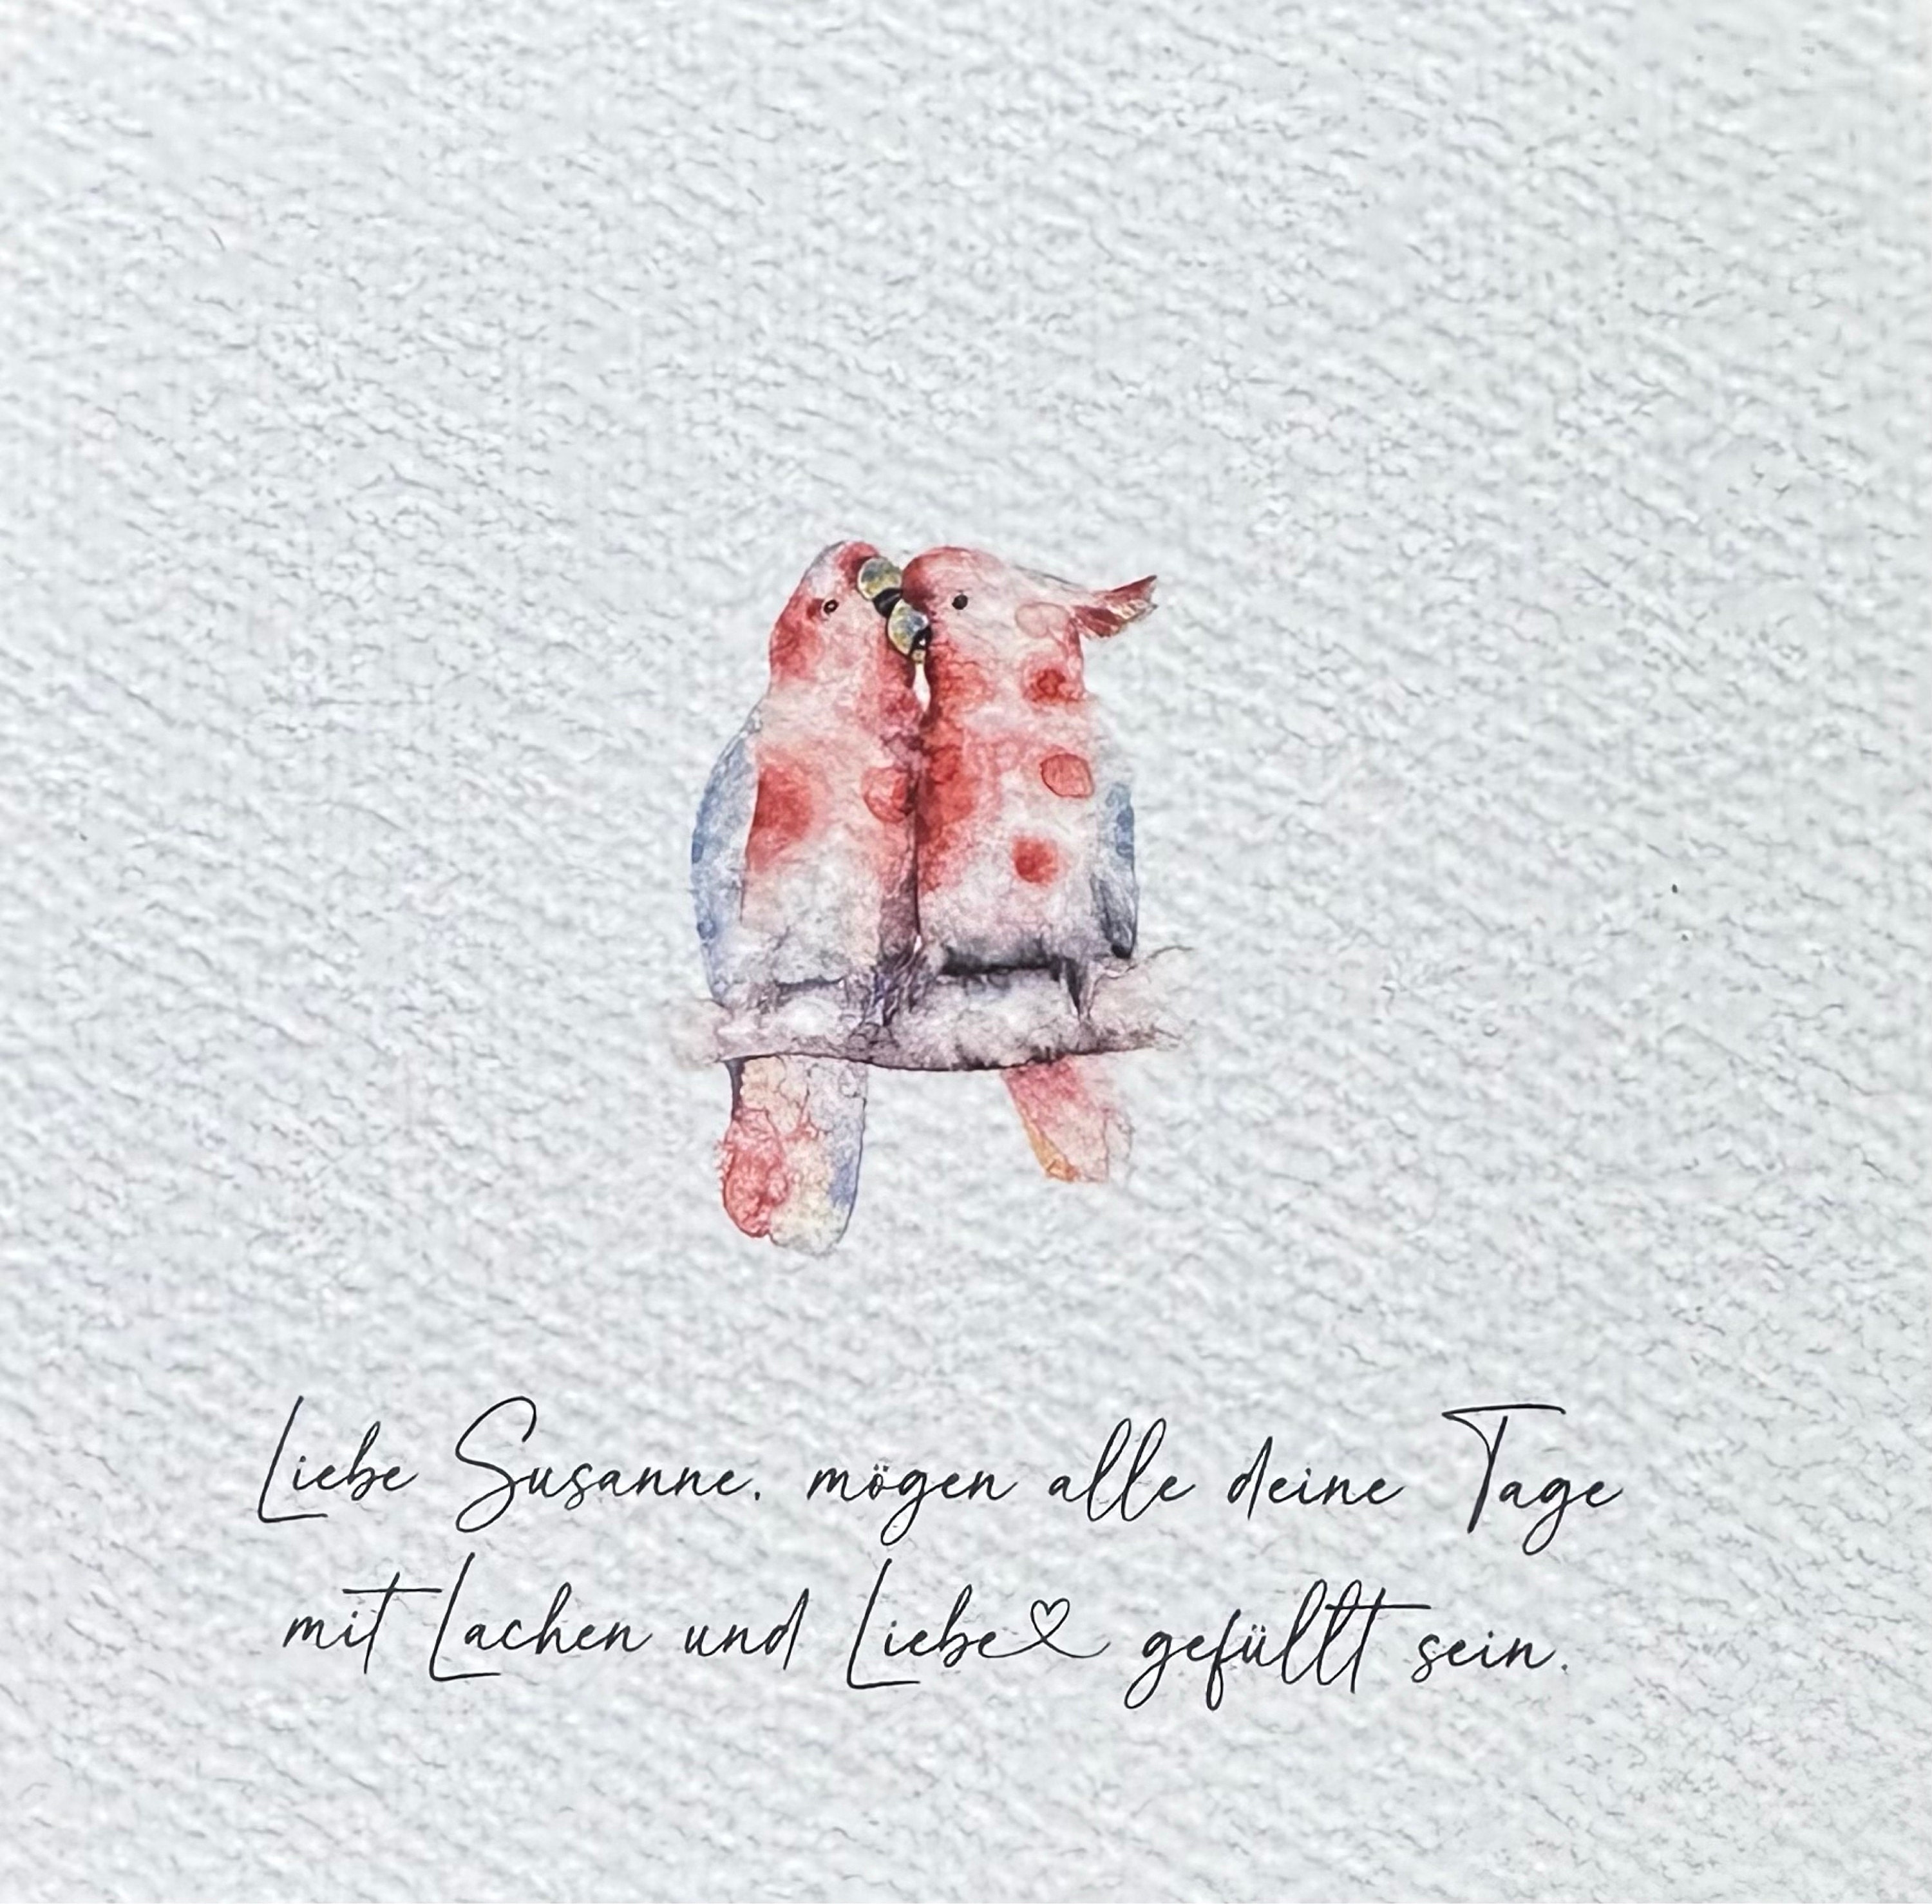 Liebe Susanne. mögen alle deine Tage
mit Lachen und Liebe♡ gefüllt sein.